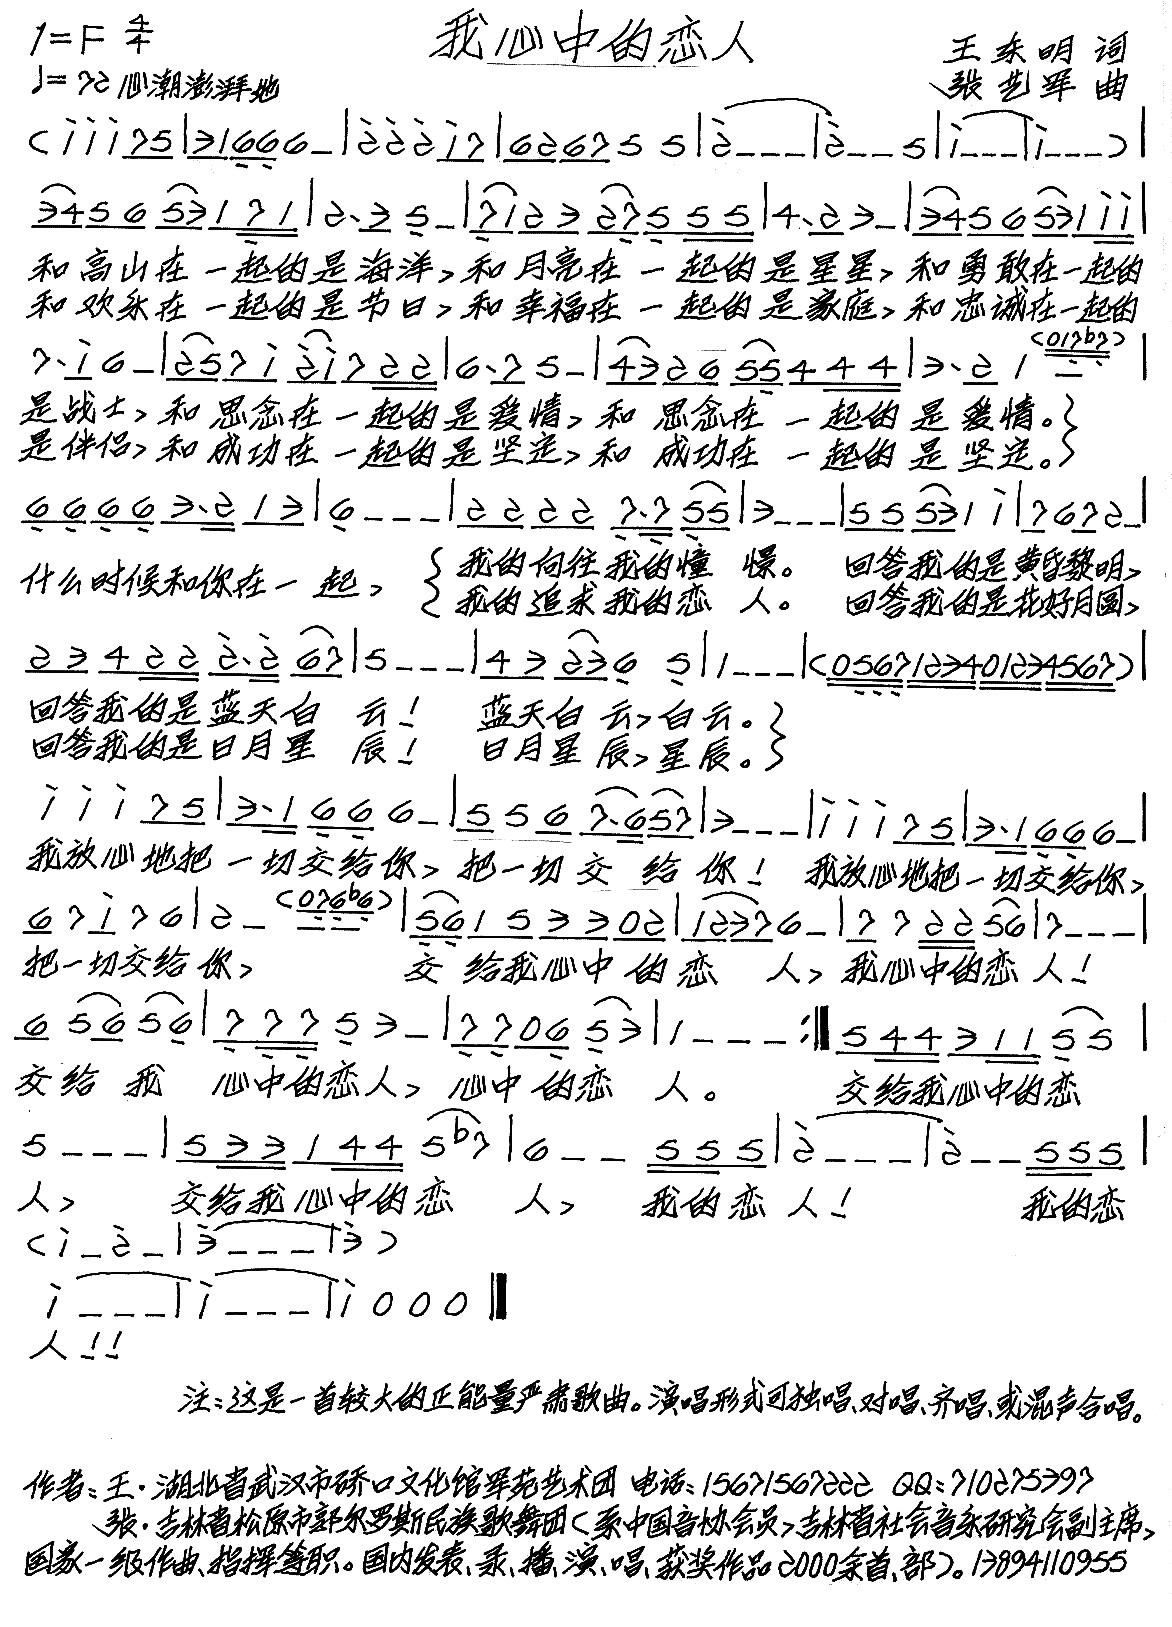 我心中的恋人
1=F 4/4
王东明 词
♩=72 心潮澎湃地
张艺军 曲
(i i i 7 5|3 1 6 6 6 _|2 2 2 i 7|6 2 6 7 5 5|2 _ _ _|2 _ _ 5|i _ _ _|i _ _ _)|
3 4 5 6 5 3 1 7 1|2· 3 5 _|7 1 2 3 2 7 5 5 5|4· 2 3 _|3 4 5 6 5 3 1 i i|
和高山在一起的是海洋,和月亮在一起的是星星,和勇敢在一起的
和欢乐在一起的是节日,和幸福在一起的是家庭,和忠诚在一起的
7· i 6 _|2 5 7 i 2 i 7 2 2|6· 7 5 _|4 3 2 6 5 5 4 4 4|3· 2 1 (0 1 7 b7)|
是战士,和思念在一起的是爱情,和思念在一起的是爱情。
是伴侣,和成功在一起的是坚定,和成功在一起的是坚定。
6 6 6 6 3· 2 1 3|6 _ _ _|2 2 2 2 7· 7 5 5|3 _ _ _|5 5 5 3 1 i|7 6 7 2 _|
什么时候和你在一起,
我的向往我的憧憬。 回答我的是黄昏黎明,
我的追求我的恋人。 回答我的是花好月圆,
2 3 4 2 2 2· 2 6 7|5 _ _ _|4 3 2 3 6 5|1 _ _ _|(0 5 6 7 1 2 3 4 0 1 2 3 4 5 6 7)|
回答我的是蓝天白云! 蓝天白云,白云。
回答我的是日月星辰! 日月星辰,星辰。
i i i 7 5|3· 1 6 6 6 _|5 5 6 7· 6 5 7|3 _ _ _|i i i 7 5|3· 1 6 6 6 _|
我放心地把一切交给你,把一切交给你! 我放心地把一切交给你,
6 7 i 7 6|2 _ (0 7 6 b6)|5 6 1 5 3 3 0 2|1 2 3 7 6 _|7 7 2 2 5 6|7 _ _ _|
把一切交给你, 交给我心中的恋人,我心中的恋人!
6 5 6 5 6|7 7 7 5 3 _|7 7 0 6 5 3|1 _ _ _ :‖ 5 4 4 3 1 1 5 5|
交给我心中的恋人,心中的恋人。 交给我心中的恋
5 _ _ _|5 3 3 1 4 4 5 b7|6 _ _ 5 5 5|2 _ _ _|2 _ _ 5 5 5|
人, 交给我心中的恋人, 我的恋人! 我的恋
(i _ 2 _|3 _ _ _|3)
i _ _ _|i _ _ _|i 0 0 0‖
人!!
注:这是一首较大的正能量严肃歌曲。演唱形式可独唱、对唱、齐唱、或混声合唱。
作者:王·湖北省武汉市硚口文化馆军苑艺术团 电话:15671567222 QQ:710275397
张·吉林省松原市郭尔罗斯民族歌舞团(系中国音协会员,吉林省社会音乐研究会副主席,
国家一级作曲、指挥等职。国内发表、录、播、演、唱、获奖作品2000余首、部)。13894110955